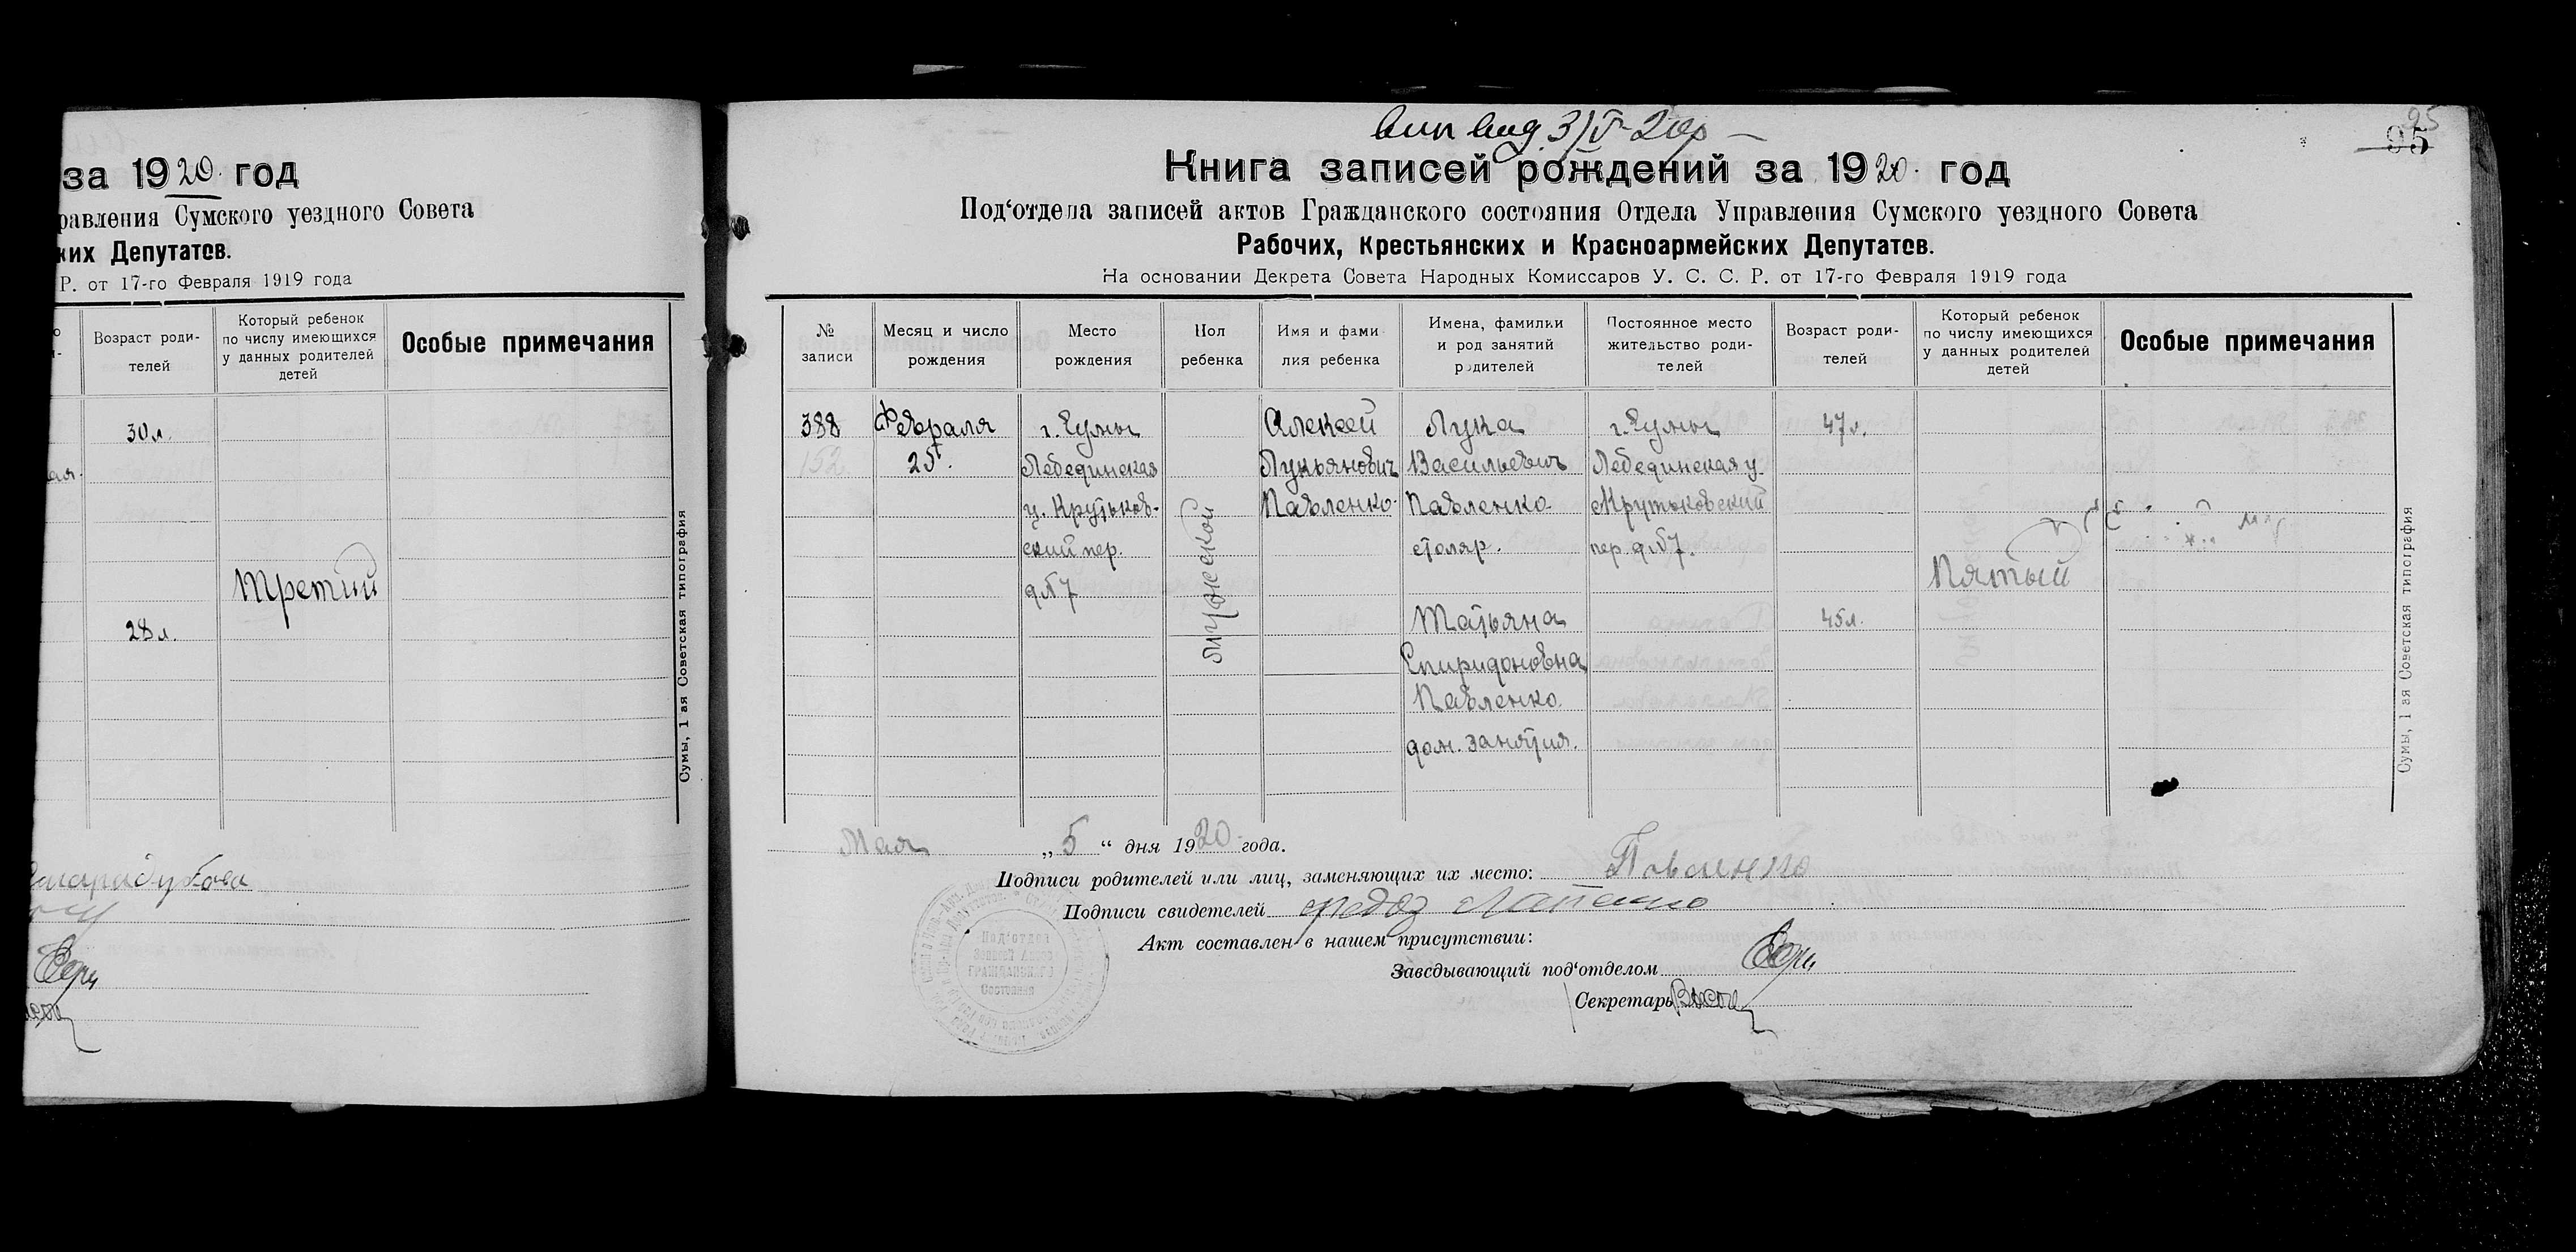 за 1920 год
равления Сумского уездного Совета
ких Депутатов.
Р. от 17-го Февраля 1919 года
Возраст роди-
телей
Который ребенок
по числу имеющихся
у данных родителей
детей
Особые примечания
30 л.
ая.
Третий
28 л.
Сумы, 1 ая Советская типография
95
95
Книга записей рождений за 1920. год
Под‘отдела записей актов Гражданского состояния Отдела Управления Сумского уездного Совета
Рабочих, Крестьянских и Красноармейских Депутатов.
На основании Декрета Совета Народных Комиссаров У. С. С. Р. от 17-го Февраля 1919 года
№
записи
Месяц и число
рождения
Место
рождения
Пол
ребенка
Имя и фами-
лия ребенка
Имена, фамилии
и род занятий
родителей
Постоянное место
жительство роди-
телей
Возраст роди-
телей
Который ребенок
по числу имеющихся
у данных родителей
детей
Особые примечания
388
152
Февраля
25.
г. Сумы
Лебединская
у. Крутьков-
ский пер.
д №7
Мужеской
Алексей
Лукьянович
Павленко
Лука
Васильевич
Павленко
столяр.
Татьяна
Спиридоновна
Павленко
дом. занятия.
г. Сумы
Лебединская у.
Крутьковский
пер. д №7.
47 л.
45 л.
Пятый
Сумы, 1 ая Советская типография
Мая „5“ дня 1920 года.
Подписи родителей или лиц, заменяющих их место: Повленко
Подписи свидетелей
Акт составлен в нашем присутствии:
Заведывающий под‘отделом
Секретарь
Под‘отдел
Записей Актов
ГРАЖДАНСКОГО
Состояния